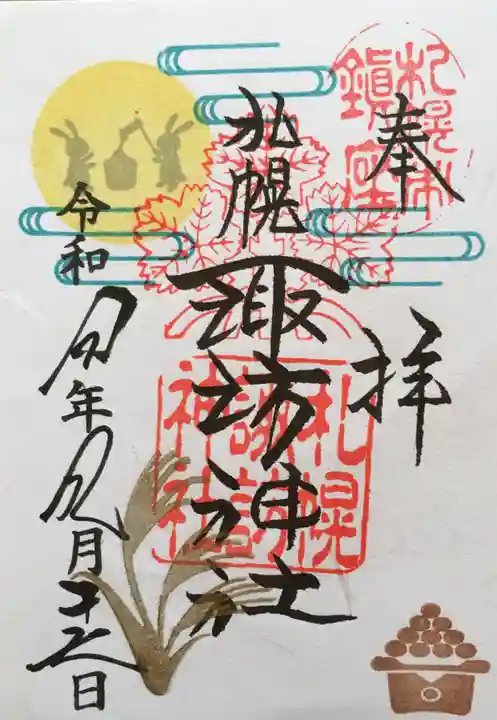 奉拝
札幌市
鎮座
札幌諏訪神社
札幌
諏訪
神社
令和 年九月 日